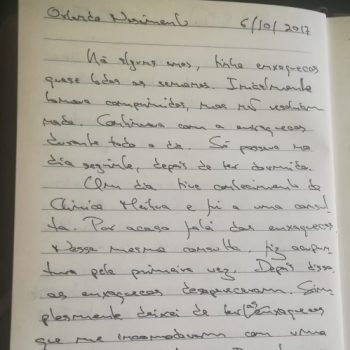 Orlando Nascimento 6/10/2017
Há alguns anos, tinha enxaquecas
quase todas as semanas. Inicialmente
tomava comprimidos, mas não resultava
nada. Continuava com a enxaquecas
durante todo o dia. Só passava no
dia seguinte, depois de ter dormido.
Um dia tive conhecimento da
Clínica e fui a uma consul
ta. Por acaso falei das enxaquecas
e nessa mesma consulta, fiz acupun
tura pela primeira vez. Depois disso
as enxaquecas desapareceram. Sim
plesmente deixei de ter as enxaquecas
que me incomodavam com uma